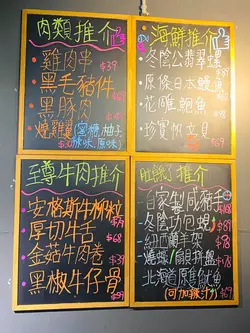 肉類推介
・雞肉串 $39
・黑毛豬件
・黑豚肉
・燒雞翼(蜜糖、柚子
原味)
海鮮推介
・冬陰公翡翠螺
・原條日本鰻魚
・花雕鮑魚
・珍寶帆立貝 $69
至尊牛肉推介
・安格斯牛柳粒 $79
・厚切牛舌 $68
・金菇牛肉卷 $39
・黑椒牛仔骨 $99
推介
・自家製咸豬手
・冬陰切包蜆
・紐西蘭羊架
・北海道原隻魷魚
(可加辣汁) $69